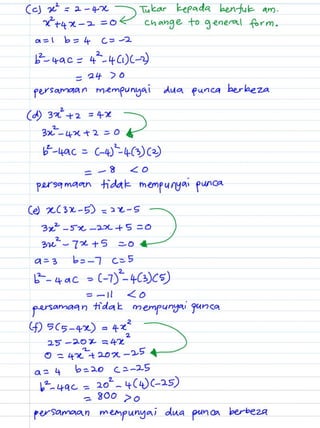 (c) x² = 2 - 4x Tukar kepada bentuk am.
x²+4x-2=0 change to general form.
a=1 b=4 c=-2
b²-4ac = 4²-4(1)(-2)
= 24 >0
persamaan mempunyai dua punca berbeza
(d) 3x²+2 = 4x
3x²-4x+2=0
b²-4ac = (-4)²-4(3)(2)
= -8 <0
persamaan tidak mempunyai punca
(e) x(3x-5) = 2x-5
3x²-5x-2x+5=0
3x²-7x+5=0
a=3 b=-7 c=5
b²-4ac = (-7)²-4(3)(5)
= -11 <0
persamaan tidak mempunyai punca
(f) 5(5-4x) = 4x²
25-20x=4x²
0=4x²+20x-25
a=4 b=20 c=-25
b²-4ac = 20²-4(4)(-25)
= 800 >0
persamaan mempunyai dua punca berbeza